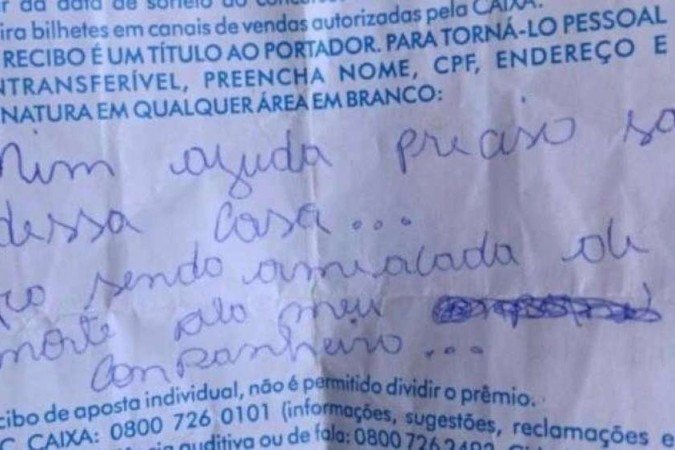 da data de sorteio do
ira bilhetes em canais de vendas autorizadas pela CAIXA.
RECIBO É UM TÍTULO AO PORTADOR. PARA TORNÁ-LO PESSOAL
NTRANSFERÍVEL, PREENCHA NOME, CPF, ENDEREÇO E
NATURA EM QUALQUER ÁREA EM BRANCO:
mim ajuda preciso sa
dessa casa...
sendo amiacada de
morte pelo meu
companheiro...
cibo de aposta individual, não é permitido dividir o prêmio.
C CAIXA: 0800 726 0101 (informações, sugestões, reclamações e
auditiva ou de fala: 0800 726 2492